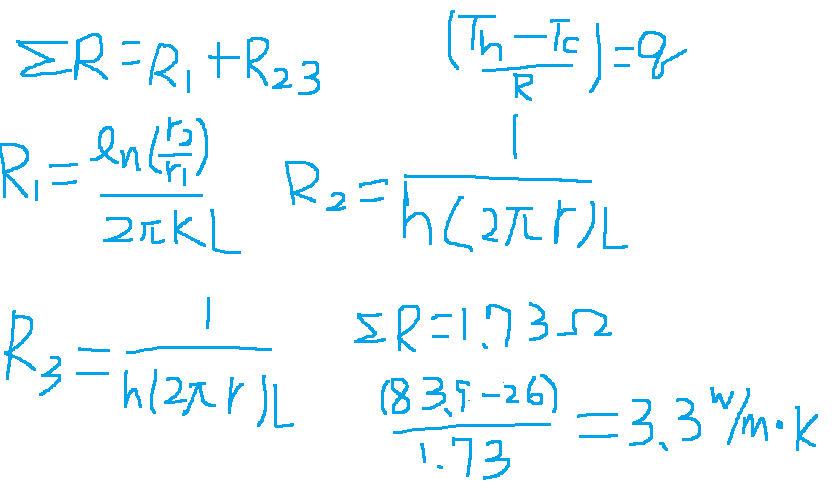 ΣR = R₁ + R₂₃
(Th − Tc / R) = q
R₁ = ln(r₂/r₁) / 2πKL
R₂ = 1 / h(2πr)L
R₃ = 1 / h(2πr)L
ΣR = 1.73Ω
(83.5 − 26) / 1.73 = 3.3 W/m·K